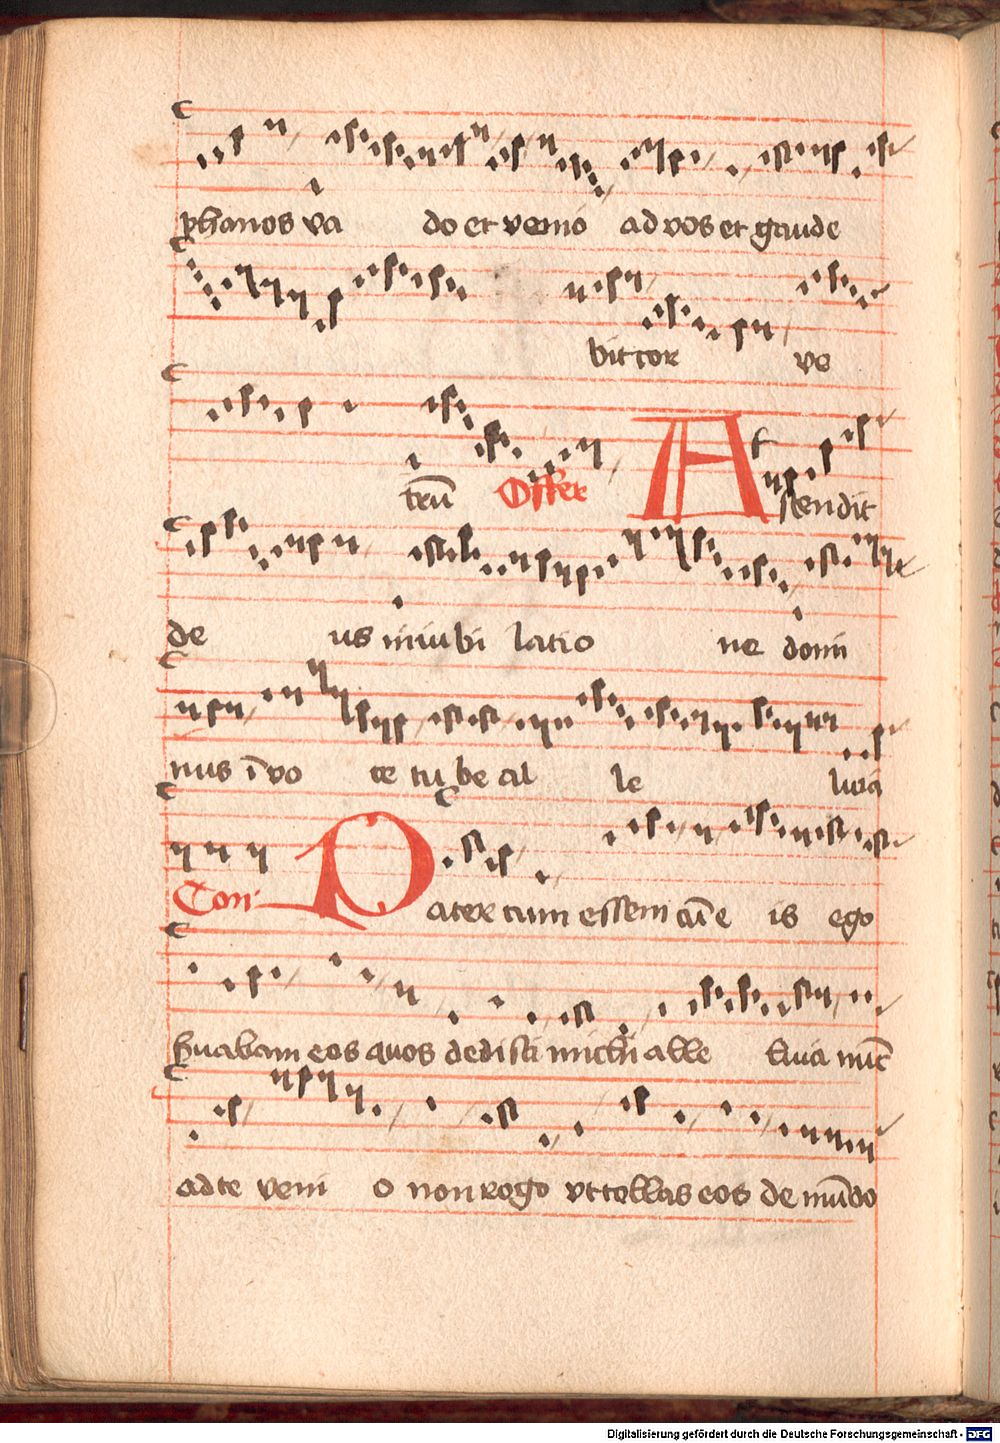 phanos va do et venio ad vos et gaude
bit cor ve
trū Offer Ascendit
de us in iubi latio ne domi
nus ī vo ce tu be al le luia
Con Pater cum essem cū e is ego
suabam eos quos dedisti michi alle luia nūc
ad te veni o non rogo vt tollas eos de mūdo
Digitalisierung gefördert durch die Deutsche Forschungsgemeinschaft - DFG